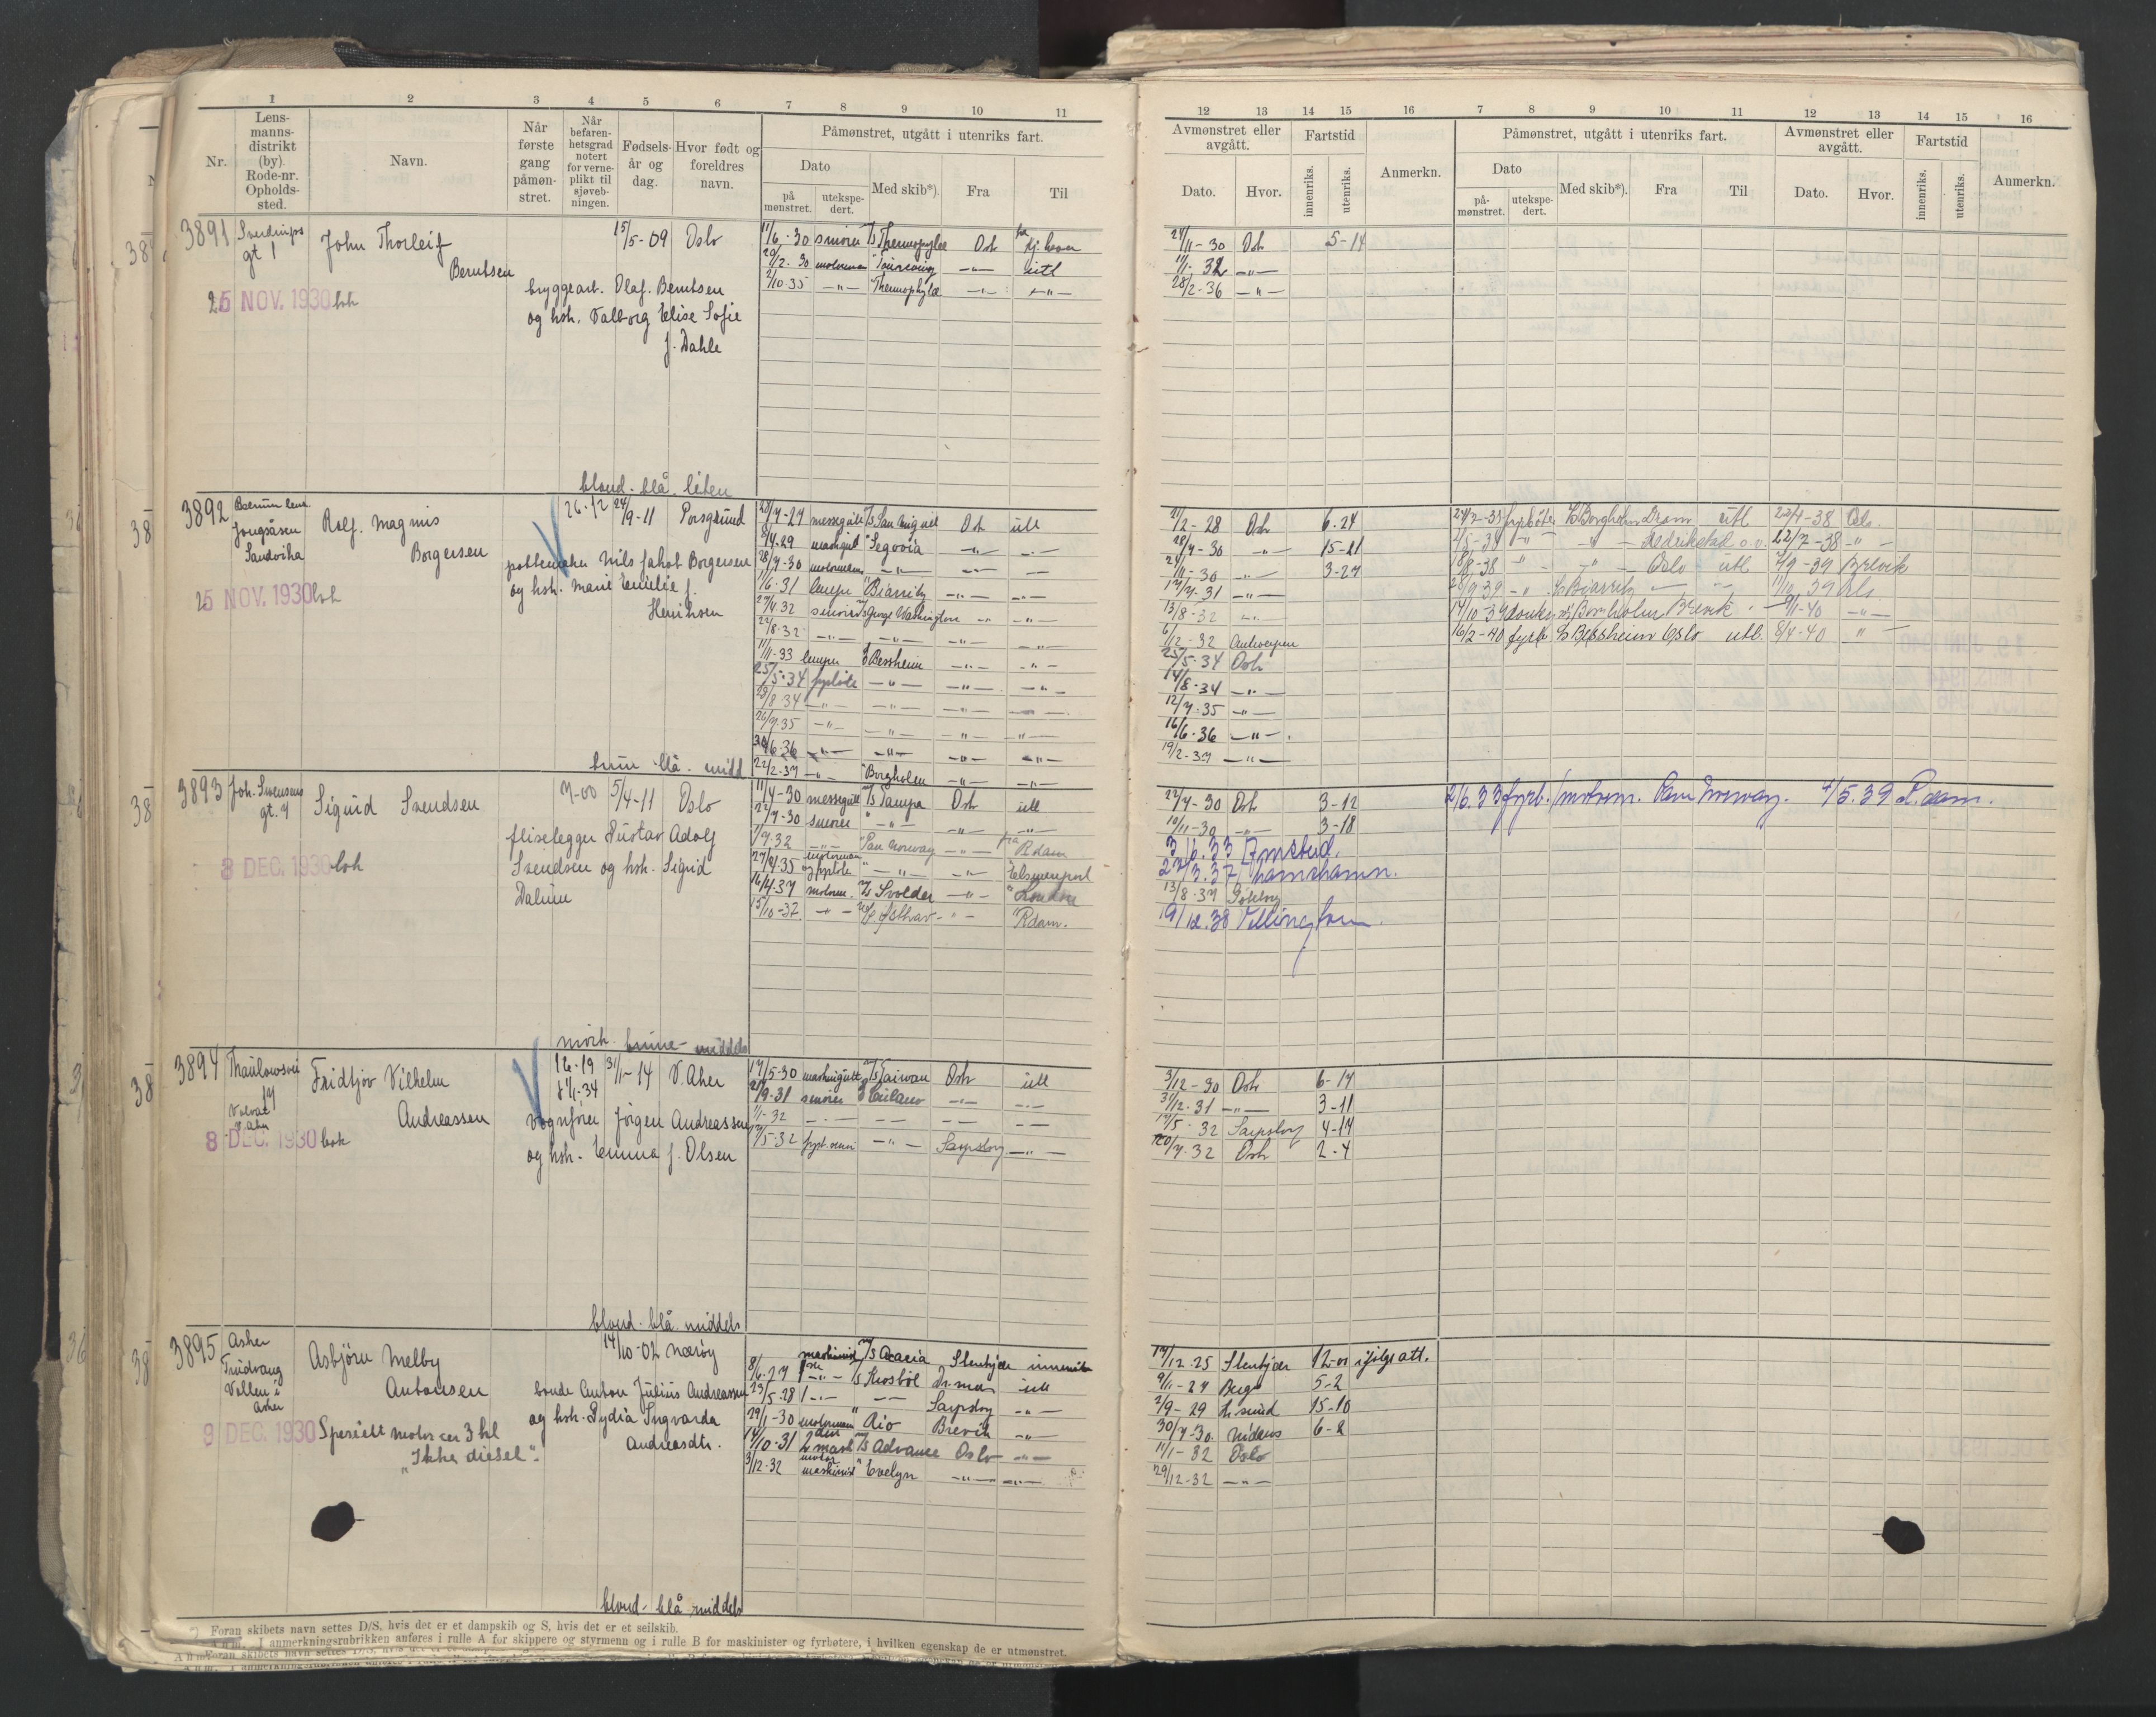 1 2 3 4 5 6 7 8 9 10 11
Nr. Lens-manns-distrikt (by). Rode-nr. Opholds-sted. Navn. Når første gang påmøn-stret. Når befaren-hetsgrad notert for verne-plikt til sjøveb-ningen. Fødsels-år og dag. Hvor født og foreldres navn. Påmønstret, utgått i utenriks fart. Dato på mønstret. utekspe-dert. Med skib*). Fra Til
12 13 14 15 16 7 8 9 10 11 12 13 14 15 16
Avmønstret eller avgått. Dato. Hvor. Fartstid innenriks. utenriks. Anmerkn. Påmønstret, utgått i utenriks fart. Dato på-mønstret. utekspe-dert. Med skib*). Fra Til Avmønstret eller avgått. Dato. Hvor. Fartstid innenriks. utenriks. Anmerkn.
3891 Sverdrups gt 1 John Thorleif Berntsen 15/5-09 Oslo
25 NOV. 1930 bok
bryggearb. Olaf. Berntsen
og hstr. Valborg Elise Sofie
f. Dahle
blond - blå liten
11/6-30 smører M/S Thermopylæ Osl
motorman " Touraine -"- utl
2/10-35 -"- " Thermopylæ -"- -"-
24/11-30 Osl 5-14
11/1-32 -"-
28/2-36 -"-
3892 Bærum lens. Jongsåsen Sandvika Rolf. Magnus Borgersen 26-12 24/9-11 Porsgrund
25 NOV. 1930 bok
pottemaker Nils Jakob Borgersen
og hstr. Marie Emilie f.
Henriksen
brun blå. midd
messegutt M/S San Miguel Osl utl
8/4-29 maskgut " Segovia -"- -"-
28/4-30 motorman -"- -"- -"-
1/6-31 lemper " Biarritz -"- -"-
27/4-32 smører M/S George Washington -"- -"-
22/8-32 -"- -"- -"- -"-
11/11-33 lemper D/S Bessheim -"- -"-
25/5-34 fyrbøte -"- -"- -"-
23/8-34 -"- -"- -"- -"-
26/7-35 -"- -"- -"- -"-
30/6-36 -"- -"- -"- -"-
22/2-37 -"- " Borgholm -"- -"-
21/2-28 Osl 6-24
28/4-30 -"- 15-21
24/11-30 -"- 3-27
17/7-31 -"-
13/8-32 -"-
6/12-32 Antwerpen
25/5-34 Osl
14/8-34 -"-
12/7-35 -"-
16/6-36 -"-
19/2-37 -"-
fyrbøter D/S Borgholm Dram utl 22/4-38 Osl.
2/5-38 -"- -"- Fredrikstad o.u. 22/7-38 -"-
18/8-38 -"- -"- Oslo utl 7/9-39 Brevik
28/9-39 -"- D/S Biarritz -"- -"- 11/10 39 Osl.
14/10-39 donkey D/S Borgholm Brevik 9/1-40 -"-
16/2-40 fyrb D/S Bessheim Oslo utl. 8/4-40 -"-
3893 Joh. Svensens gt. 7 Sigurd Svendsen 7-00 5/4-11 Oslo
8 DEC. 1930 bok
fliselegger Gustav Adolf
Svendsen og hstr. Sigrid
Dalum
mørk - brune - middels
11/4-30 messegutt M/S Tampa Osl utl
22/7-30 smører " -"- -"- -"-
7/9-32 -"- " San Norway -"- fra R.dam
27/4-35 motorman -"- -"- -"-
16/4-37 motorm. M/S Svolder -"- " London
15/10-37 -"- M/T Østhav -"- " Rdam.
22/7-30 Osl 3-12
10/11-30 -"- 3-18
3/6.33 Amsterd.
13/8-37 Göteborg
19/12.38 Vellington
2/6.33 fyrb./motorm. Norway. 4/5.39 R.dam.
3894 Thaulowsvei 17 Fridtjov Vilhelm Andreassen 12-19 8/1-34 31/1-14 V. Aker
8 DEC. 1930 bok
vognfører Jørgen Andreassen
og hstr. Emma f. Olsen
blond - blå middels
17/5-30 maskingutt M/S Taiwan Osl utl
2/9-31 smører -"- -"-
1/1-32 -"- -"- -"- -"-
-"- Sarpsborg -"-
3/12-30 Osl 6-17
31/12-31 -"- 3-11
17/5-32 Sarpsborg 4-17
20/7-32 Osl 2-4
3895 Asker Tridvang Vollen i Asker Asbjørn Melby Antonsen 14/10-02 Nærøy
8 DEC. 1930 Spesielt motor cer 3 kl
"Ikke diesel".
bonde Anton Julius Andreassen
og hstr. Lydia Ingvarda
Andreasdtr.
blond - blå middels
maskinist M/S Acacia Stenkjær innenriks
8/6-27 1ste -"- D/S Krosbøl Dr.men utl
23/5-28 1 -"- -"- Sarpsborg -"-
29/1-30 motorman " Aio Brevik -"-
14/10-31 2den mask M/S Advance Oslo -"-
3/12-32 motor maskinist " Evelyn -"- -"-
17/12-25 Stenkjær 12-01 ifølge att.
9/11-27 Berge 5-2
2/9-29 15-10
30/7-30 Nidaros 6-2
11/1-32 Oslo
29/12-32 -"-
Foran skibets navn settes D/S, hvis det er et dampskib og S, hvis det er et seilskib.
Anm. I anmerkningsrubrikken anføres i rulle A for skippere og styrmenn og i rulle B for maskinister og fyrbøtere, i hvilken egenskap de er utmønstret.